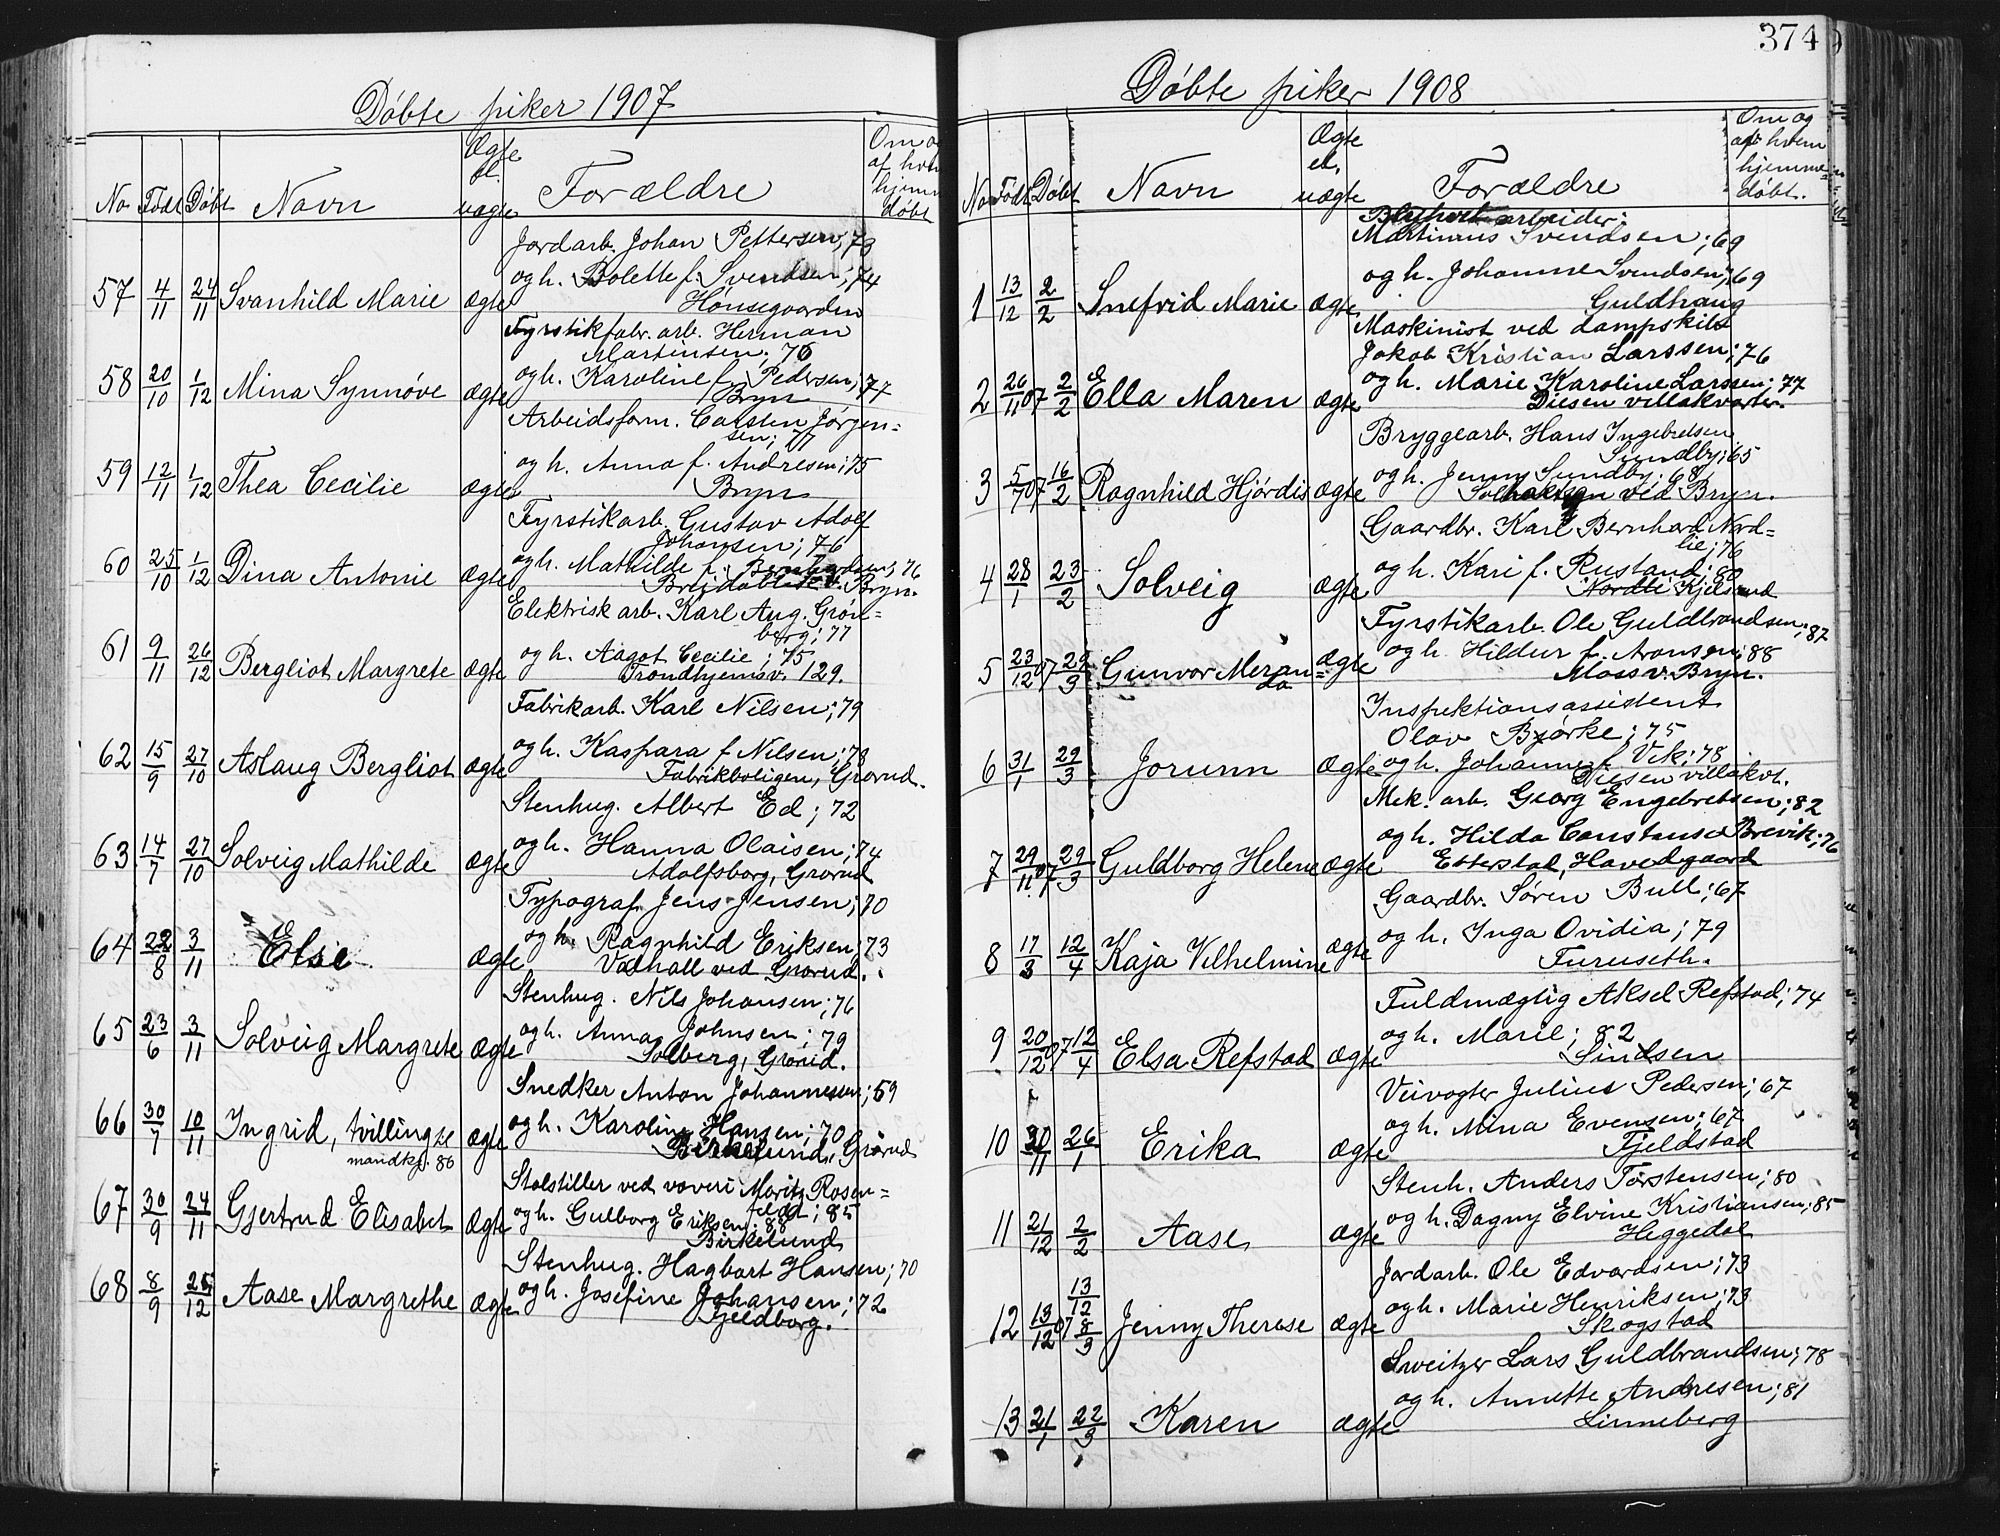 Døbte piker 1907
No Født Døbt Navn Ægte el. uægte Forældre Om og af hvem hjemme døbt
Jordarb. Johan Pettersen; 73
57 4/11 24/11 Svanhild Marie ægte og h. Bolette f. Svendsen; 74
Hønsegaarden
Fyrstikfabr. arb. Herman
Martinsen. 76
58 20/10 1/12 Mina Synnøve ægte og h. Karoline f. Pedersen; 77
Bryn
Arbeidsform. Carsten Jørgen=
sen; 77
59 12/11 1/12 Thea Cecilie ægte og h. Anna f. Andresen; 75
Bryn
Fyrstikarb. Gustav Adolf
Johansen; 76
60 25/10 1/12 Dina Antonie ægte og h. Mathilde f. Berntzdsen; 76
Breidablik v. Bryn.
Elektrisk arb. Karl Aug. Grøn=
berg; 77
61 9/11 26/12 Bergliot Margrete ægte og h. Aagot Cecilie; 75
Trondhjemsv. 129.
Fabrikarb. Karl Nilsen; 79
62 15/9 27/10 Aslaug Bergliot ægte og h. Kaspara f. Nilsen; 78
Fabrikboligen, Grorud.
Stenhug. Albert Ed; 72
63 14/7 27/10 Solveig Mathilde ægte og h. Hanna Olaisen; 74
Adolfsborg, Grorud
Typograf Jens Jensen; 70
64 22/8 3/11 Else ægte og h. Ragnhild Eriksen; 73
Valhall ved Grorud.
Stenhug. Nils Johansen; 76
65 23/6 3/11 Solveig Margrete ægte og h. Anna Johnsen; 79
Solberg, Grorud.
Snedker Anton Johannesen; 59
66 30/7 10/11 Ingrid, tvilling ægte og h. Karoline Hansen; 70
mandkj. 86 Birkelund, Grorud
Stolstiller ved væveri Moritz Rosen=
feldt; 85
67 30/9 24/11 Gjertrud Elisabet ægte og h. Gulborg Eriksen; 88
Birkelund
Stenhug. Hagbart Hansen; 70
68 8/9 25/12 Aase Margrethe ægte og h. Josefine Johansen; 72
Fjeldborg.
374
Døbte piker 1908
No Født Døbt Navn Ægte el. uægte Forældre Om og af hvem hjemme= døbt.
arbeider:
Martinius Svendsen; 69
1 13/12 2/2 Snefrid Marie ægte og h. Johanne Svendsen; 69
Guldhaug
Maskinist ved dampskib
Jakob Kristian Larssen; 76
2 26/11 07 2/2 Ella Maren ægte og h. Marie Karoline Larssen; 77
Disen villakvarter.
Bryggearb. Hans Ingebretsen
Sundby; 65
3 5/7 07 16/2 Ragnhild Hjördis ægte og h. Jenny Sundby; 68
Solbakken ved Bryn.
Gaardbr. Karl Bernhard Nord=
lie; 76
4 28/1 23/2 Solveig ægte og h. Kari f. Rustand; 80
Nordli Kjelsrud
Fyrstikarb. Ole Guldbrandsen; 87
5 23/12 07 29/3 Gunvor Meran=
da ægte og h. Hildur f. Aronsen; 88
Moss v. Bryn.
Inspektionsassistent
Olav Bjørke; 75
6 31/1 29/3 Jorunn ægte og h. Johanne f. Vik; 78
Disen villakvt.
Mek. arb. Georg Engebretsen; 82
7 29/11 07 29/3 Guldborg Helene ægte og h. Hilda Constanse Brevik; 76
Etterstad, Hovedgaard
Gaardbr. Søren Bull; 67
8 17/3 12/4 Kaja Vilhelmine ægte og h. Inga Ovidia; 79
Furuseth.
Fuldmægtig Aksel Refstad; 74
9 20/12 07 12/4 Elsa Refstad ægte og h. Marie; 82
Sindsen
Veivogter Julius Pedersen; 67
10 30/11 26/1 Erika ægte og h. Mina Evensen; 67
Fjeldstad
Stenh. Anders Torstensen; 80
11 21/12 2/2 Aase ægte og h. Dagny Elvine Kristiansen; 85
Heggedal
Jordarb. Ole Edvardsen; 73
13/12
12 13/12 07 8/3 Jenny Therese ægte og h. Marie Henriksen; 73
Skogstad
Sweitzer Lars Guldbrandsen; 78
13 21/1 22/3 Karen ægte og h. Annette Andresen; 81
Linneberg